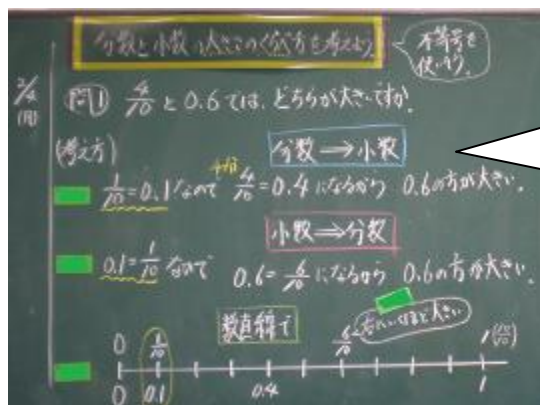 分数と小数の大きさのくらべ方を考えよう
不等号を
使おう。
2/4
(月)
問1 4/10と0.6では、どちらが大きいですか。
(考え方)
分数→小数
1/10=0.1なので 4/10=0.4になるから 0.6の方が大きい。
小数⇒分数
0.1=1/10なので 0.6=6/10になるから 0.6の方が大きい。
数直線で
0 1/10 6/10 1(10/10)
0 0.1 0.4 1